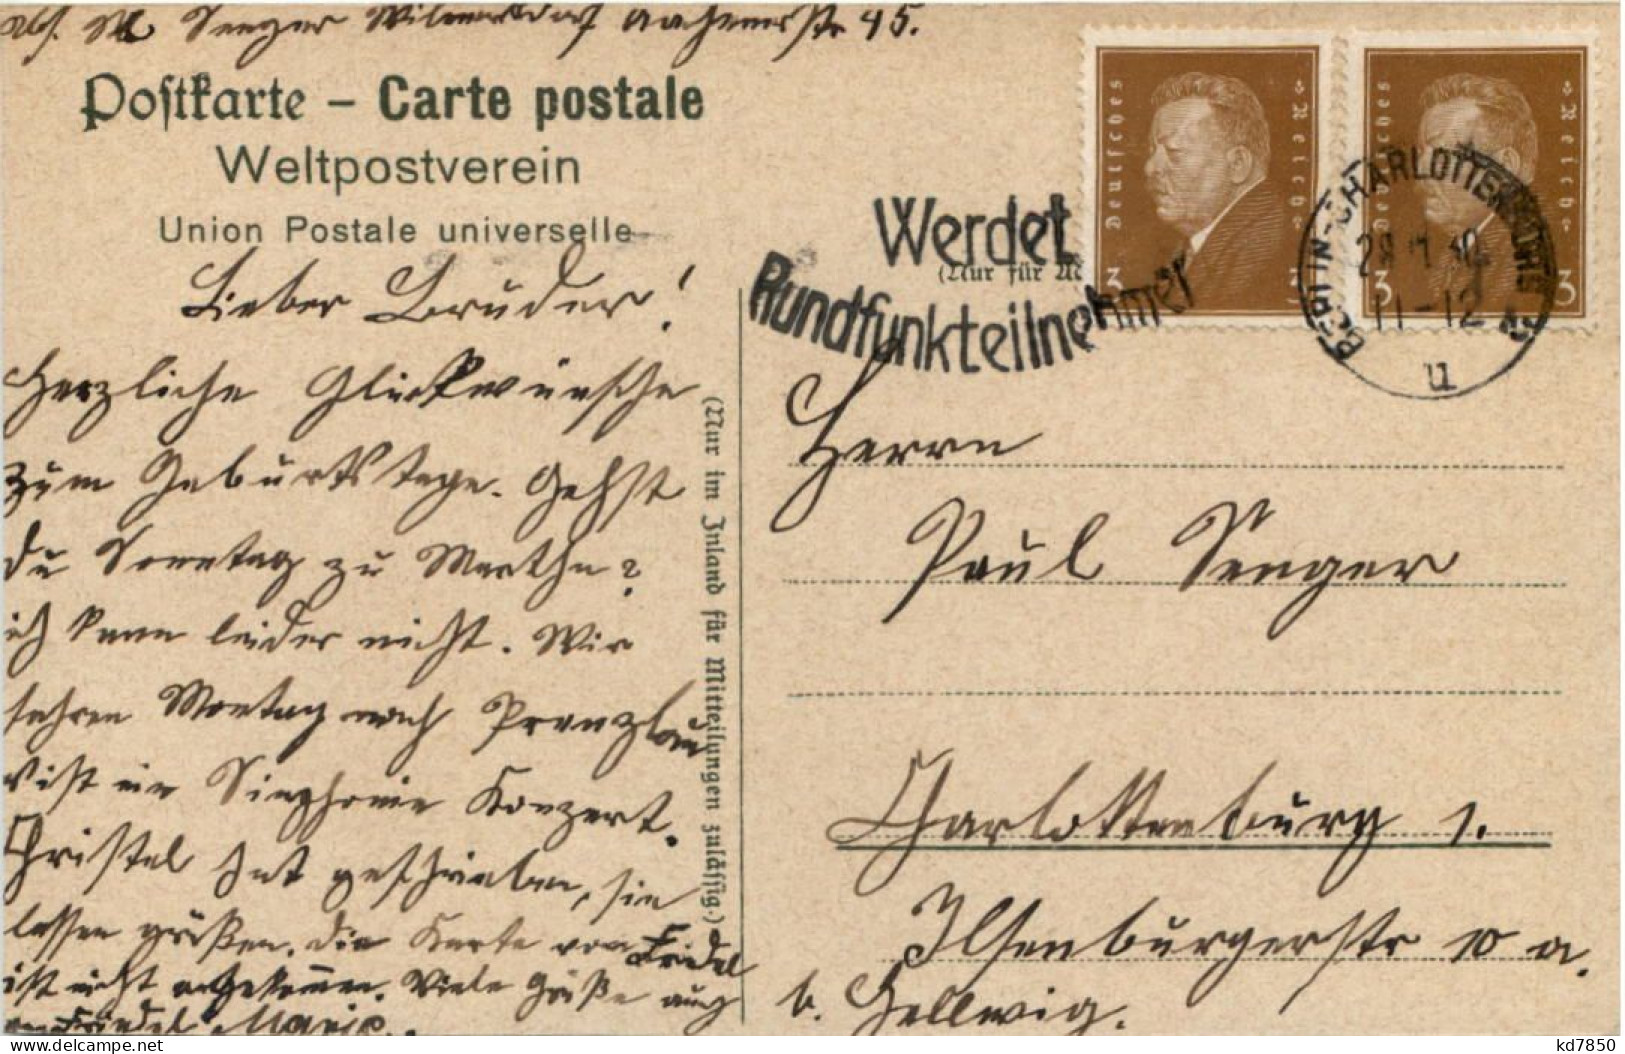 Abs. M Senger Wilmersdorf Aachenerstr 45.
Postkarte – Carte postale
Weltpostverein
Union Postale universelle
Lieber Bruder!
Herzliche Glückwünsche
zum Geburtstage. Gehst
du Sonntag zu Marthe?
ich kann leider nicht. Wir
fahren Montag nach Prenzlau
ist ein Sinphonie Konzert.
Christel hat geschrieben, sie
lassen grüßen. die Karte von Friedel
ist nicht angekommen. Viele Grüße auch
von Friedel Marie.
(Nur im Inland für Mitteilungen zulässig.)
Deutsches Reich
3 3
Deutsches Reich
3 3
(Nur für
Werdet
Rundfunkteilnehmer
BERLIN-CHARLOTTENBURG
11-12
u
Herrn
Paul Senger
Charlottenburg 1.
Ilsenburgerstr 10 a.
b. Hellwig.
kd7850